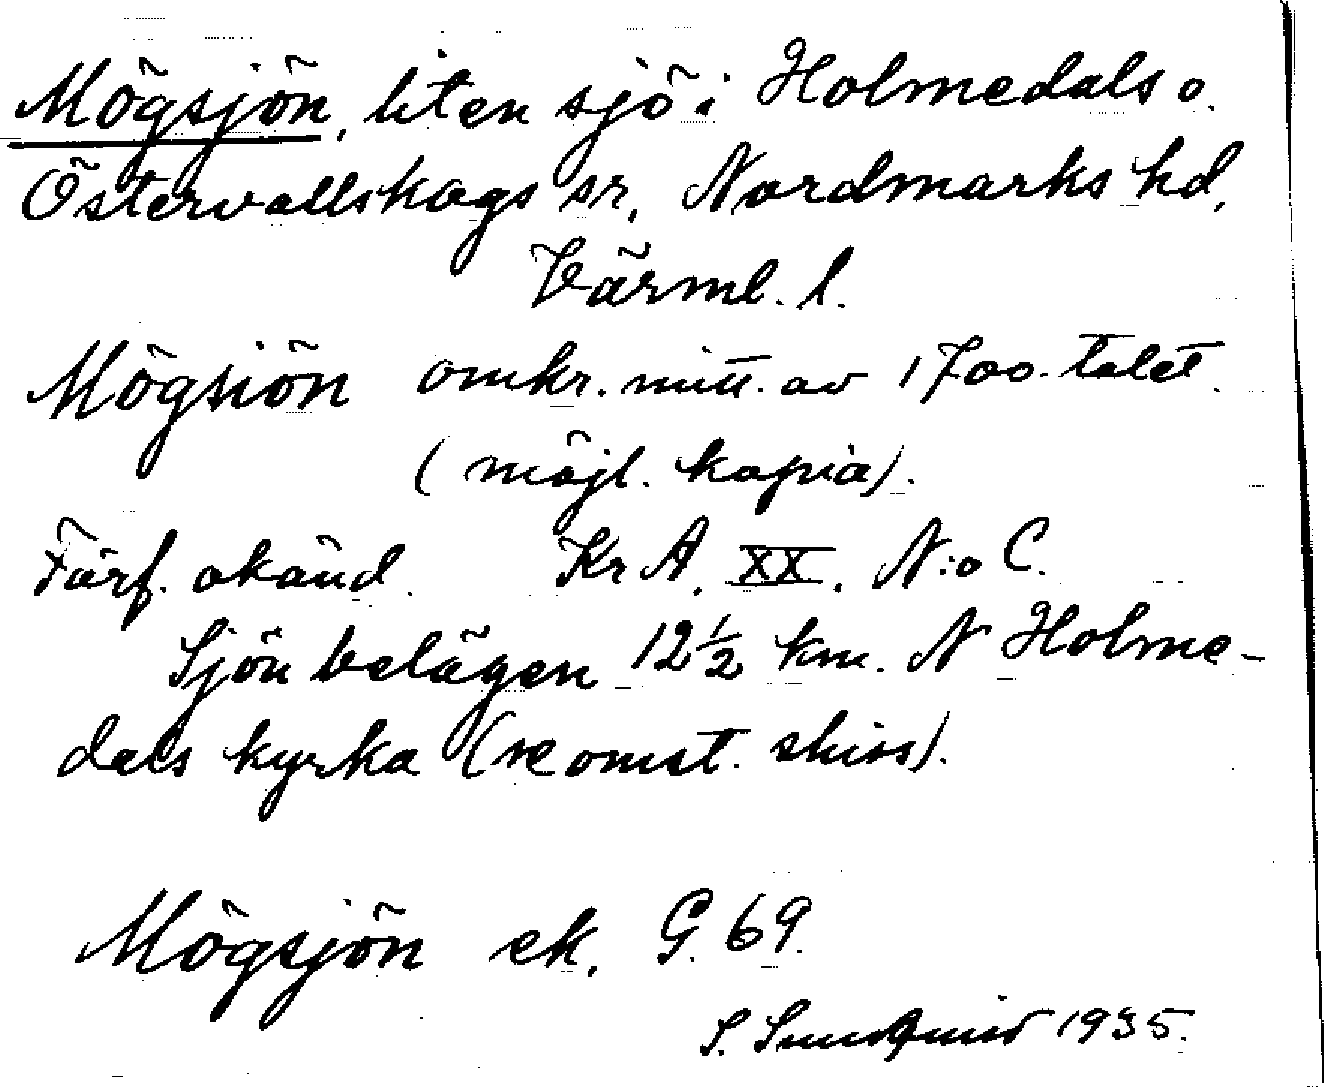 Mögsjön, liten sjö i Holmedals o.
Östervallskogs sr, Nordmarks hd,
Värml. l.
Mögsiön omkr. mitt. av 1700-talet.
(möjl. kopia).
Förf. okänd. Kr A. XX. N:o C.
Sjön belägen 12 1/2 km. N Holme-
dals kyrka (se omst. skiss).
Mögsjön ek. G. 69.
S. Sundquist 1935.